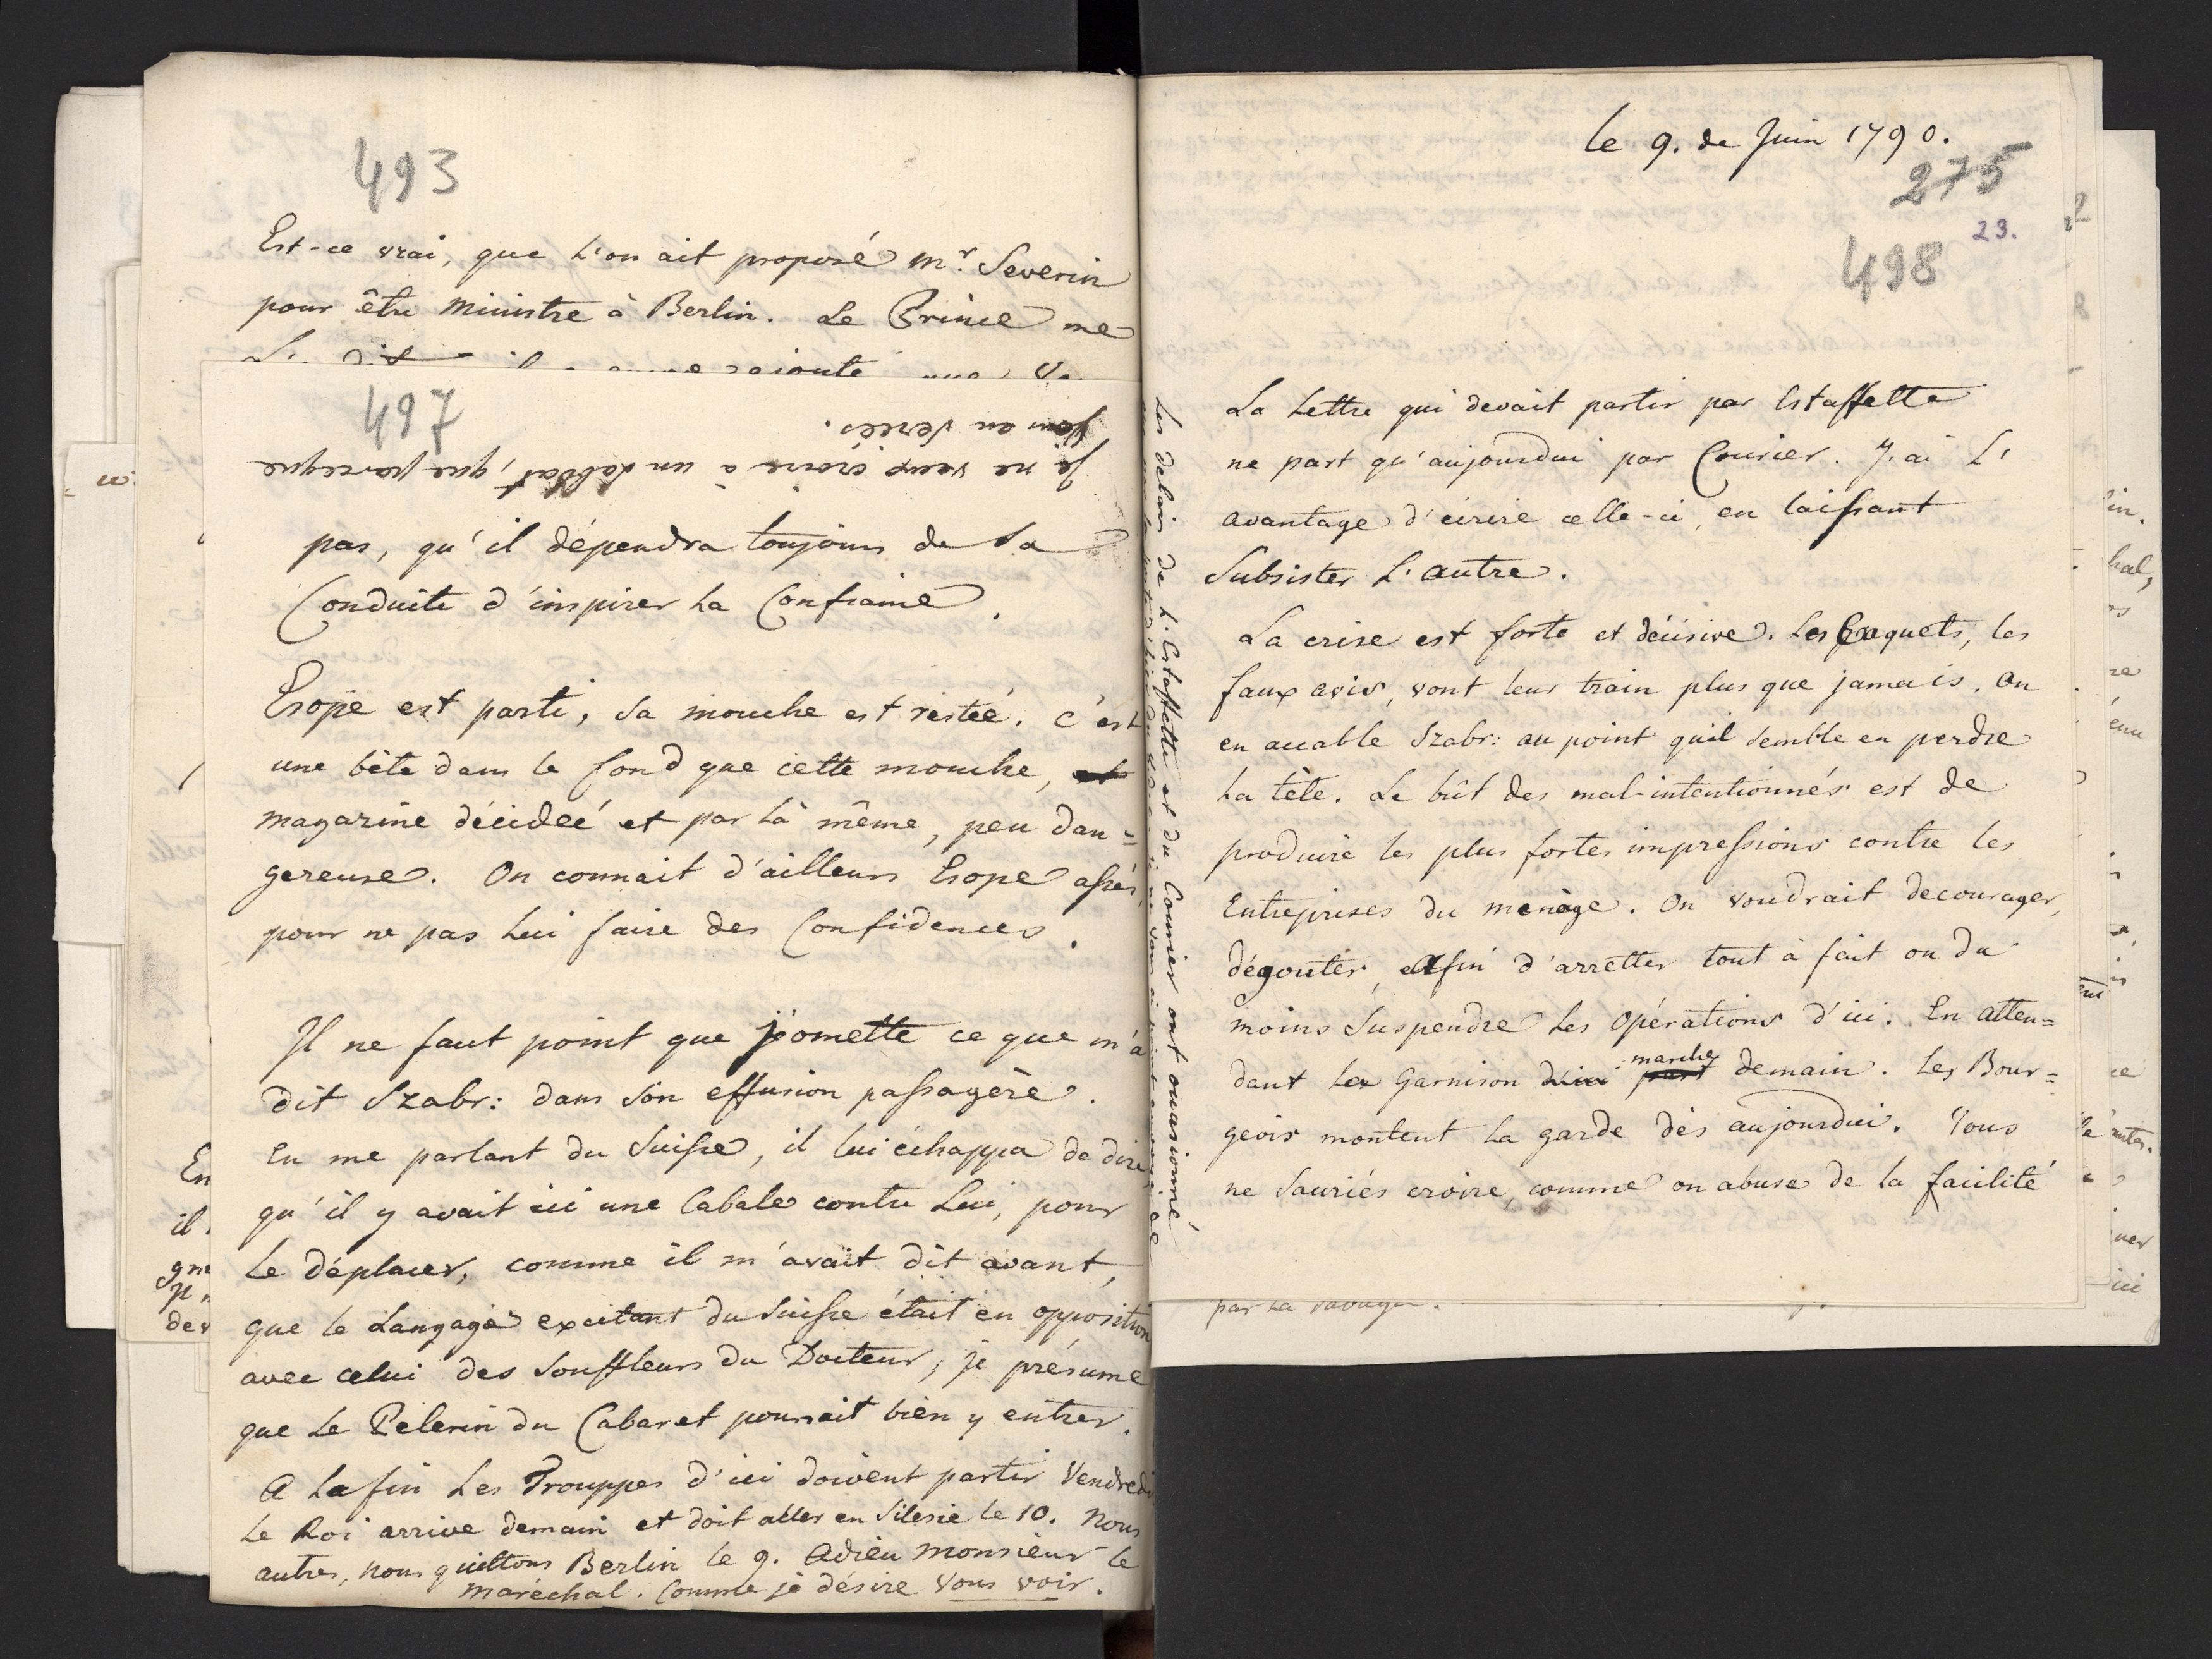 493
Est-ce vrai, que l'on ait proposé mr. Severin
pour être Ministre à Berlin. Le Prince me
497
je ne veux croire à un Sabbat, que parceque
Vous en seriés.
pas, qu'il dépendra toujours de Sa
Conduite d'inspirer la Confiance.
Esope est parti, sa mouche est restée. c'est
une bête dans le fond que cette mouche,
magazine décideé et par là même, peu dan=
gereuse. On connait d'ailleurs Esope assés
pour ne pas lui faire des Confidences.
Il ne faut point que j'omette ce que m'a
dit Szabr: dans son effusion passagère.
En me parlant du Suisse, il lui échappa de dire
qu'il y avait ici une Cabale contre Lui, pour
le déplacer, comme il m'avait dit avant,
que le Langage excitant du Suisse était en opposition
avec celui des Souffleurs du Docteur; je présume
que le Pelerin du Cabaret pourrait bien y entrer.
A la fin les Trouppes d'ici doivent partir Vendredi
le Roi arrive demain et doit aller en Silesie le 10. Nous
autres, nous quittons Berlin le 9. Adieu Monsieur le
Maréchal. Comme je désire Vous voir.
le 9. de Juin 1790.
275
23.
498
La Lettre qui devait partir par Estaffette
ne part qu'aujourdui par Courier. J'ai L'
avantage d'ecrire celle-ci, en laissant
Subsister L'autre.
La crise est forte et décisive. Les Caquets, les
faux avis, vont leur train plus que jamais. On
en accable Szabr: au point quil semble en perdre
la tête. Le bût des mal-intentionnés est de
produire les plus fortes impressions contre les
Entreprises du menage. On voudrait decourager,
dégouter, afin d'arretter tout à fait ou du
moins Suspendre les Opérations d'ici. En atten=
dant la Garnison d'ici marche demain. Les Bour=
geois montent la garde dès aujourdui. Vous
ne Sauriés croire, comme on abuse de la facilité
Les delais de L'Estaffette et du Courier ont occasionné